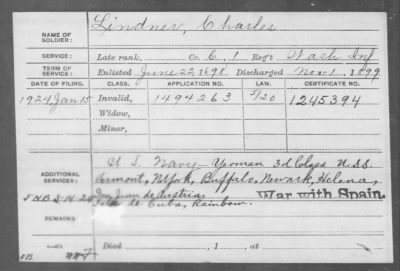 Lindner, Charles
NAME OF SOLDIER:
SERVICE: Late rank, Co. I Reg't Wash Inf
TERM OF SERVICE: Enlisted June 22, 1898 Discharged Nov 1, 1899
DATE OF FILING. CLASS. APPLICATION NO. LAW. CERTIFICATE NO.
1924 Jan 15 Invalid, 1494263 5/20 1245394
Widow,
Minor,
U S Navy - Yeoman 3d Class U.S.S.
ADDITIONAL SERVICES: Vermont, Norfolk, Buffalo, Newark, Helena,
Don Juan de Austria, War with Spain.
de Cuba, Rainbow.
REMARKS
Died , 1 , at